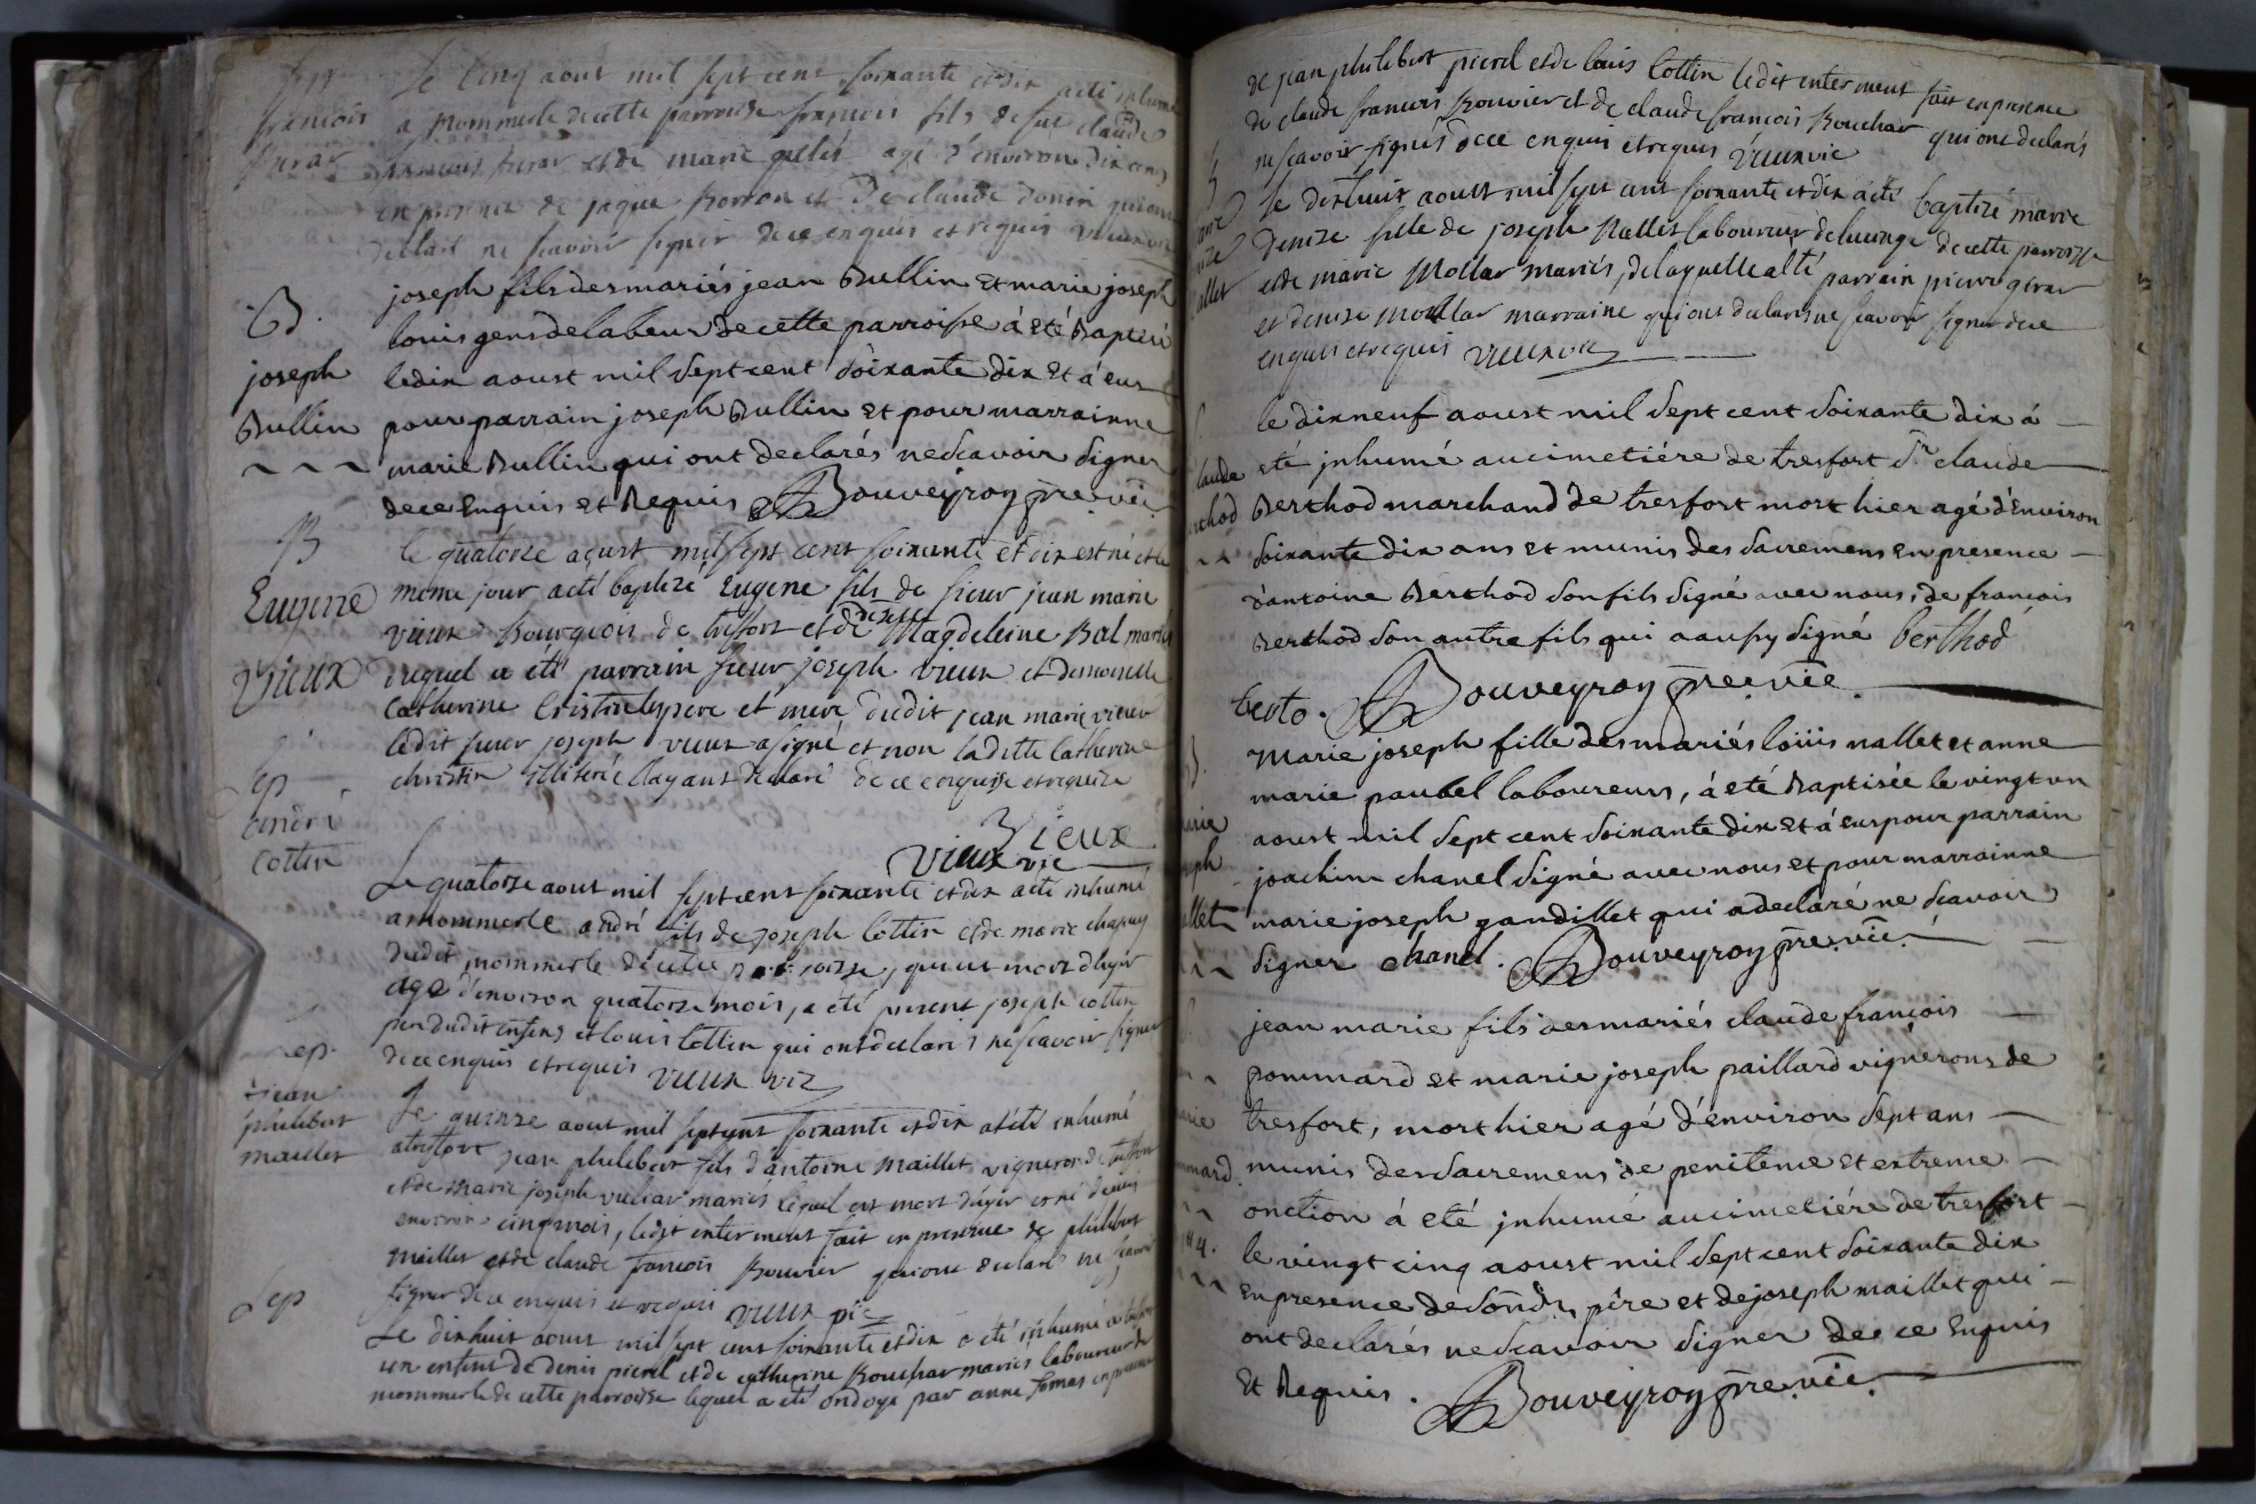 Le cinq aout mil sept cent soixante et dix a eté inhumé
françois
a mommerle de cette parroisse françois fils de feu claude
et de marie agé d'environ dix ans
en presence de jaque et de claude donin qui ont
declaré ne scavoir signer de ce enquis et requis vieux vic
B.
joseph
Bullin
joseph fils des mariés jean Bullin et marie joseph
louis gens de labeur de cette parroisse à eté Baptisé
le dix aoust mil sept cent soixante dix et à eu
pour parrain joseph Bullin et pour marrainne
marie Bullin qui ont declarés ne scavoir signer
de ce Enquis et Requis Bouveyron pre. vic.
B
Eugene
Vieux
le quatorze aoust mil sept cent soixante et dix est né et le
meme jour a eté baptizé Eugene fils de sieur jean marie
vieux Bourgeois de tresfort et de demlle Magdeleine Bal mariés
duquel a eté parrain sieur joseph vieux et demoiselle
Catherine Cristin pere et mere dudit jean marie vieux
ledit sieur joseph vieux a signé et non laditte Catherine
christin illiterée layant declaré de ce enquise et requize
Vieux
Vieux vic
Sep
andré
Cottin
Le quatorze aout mil sept cent soixante et dix a eté inhumé
a mommerle andré fils de joseph Cottin et de marie chapuy
dudit mommerle de cette parroisse, qui est mort d'hyer
agé d'environ quatorze mois, a eté present joseph cottin
pere dudit enfens et louis Cottin qui ont declarés ne scavoir signer
de ce enquis et requis vieux vic
Sep.
jean
philibert
maillet
Le quinze aout mil sept cent soixante et dix a eté inhumé
a tresfort jean philibert fils d'antoine Maillet vigneron de tresfort
et de Marie joseph vuliar mariés lequel est mort d'hyer et né depuis
environ cinq mois, ledit enterment fait en presence de philibert
maillet et de claude françois Bouvier qui ont declaré ne scavoir
signer de ce enquis et requis vieux vic
Sep
Le dixhuit aout mil sept cent soixante et dix a eté inhumé a tresfort
un enfent de denis pierel et de catherine Bouchar mariés laboureur de
mommerle de cette parroisse lequel a eté ondoyé par anne Tomas en presence
de jean philibert pierel et de louis Cottin ledit enterment fait en presence
de claude francois Bouvier et de claude françois Bouchar qui ont declarés
ne scavoir signés de ce enquis et requis Vieux vic
le dixhuit aoust mil sept cent soixante et dix a eté baptizé marie
Denize fille de joseph Nallet laboureur de lucinge de cette parroisse
et de marie Mollar mariés, de laquelle a eté parrain pierre gerar
et denize mollar marraine qui ont declarés ne scavoir signer de ce
enquis et requis vieux vic
le dix neuf aoust mil sept cent soixante dix à
eté jnhumé au cimetiére de tresfort Sr claude
Berthod marchand de tresfort mort hier agé d'Environ
soixante dix ans et munis des sacremens en presence
d'antoine Berthod son fils signé avec nous, de françois
Berthod son autre fils qui a aussy signé berthod
berto. Bouveyron pre. vic.
Marie joseph fille des mariés loüis nallet et anne
marie paubel laboureurs, à eté Baptisée le vingt un
aoust mil sept cent soixante dix et à eu pour parrain
joachim chanel signé avec nous et pour marrainne
marie joseph gandillet qui a declaré ne scavoir
signer chanel. Bouveyron pre. vic.
jean marie fils des mariés claude françois
pommard et marie joseph paillard vignerons de
tresfort, mort hier agé d'environ sept ans
munis des sacremens de penitence et extreme
onction à eté jnhumé au cimetiére de tresfort
le vingt cinq aoust mil sept cent soixante dix
En presence de son dt. pére et de joseph maillet qui
ont declarés ne scavoir signer de ce Enquis
Et Requis. Bouveyron pre. vic.